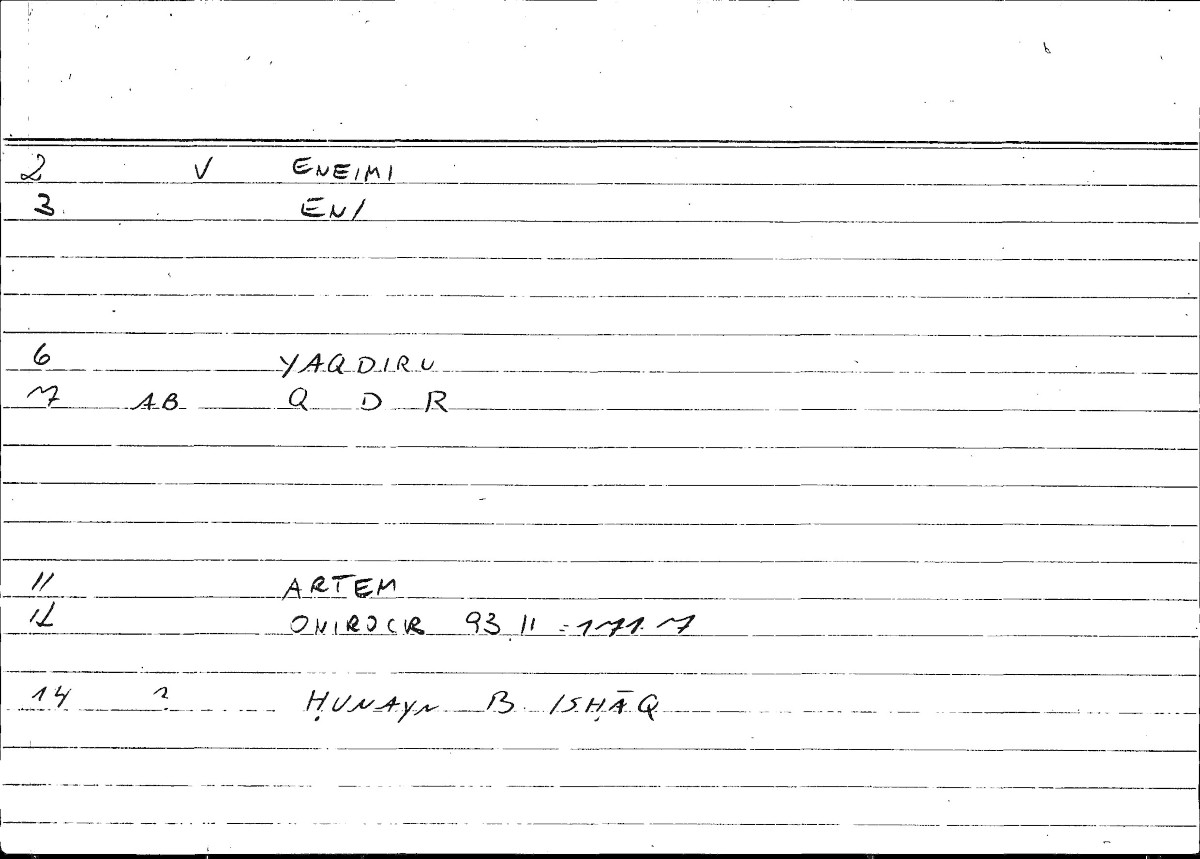 2 V ENEIMI
3 ENI
6 YAQDIRU
7 AB Q D R
11 ARTEM
12 ONIROCR 93.11 = 171.7
14 2 ḤUNAYN B. ISḤĀQ